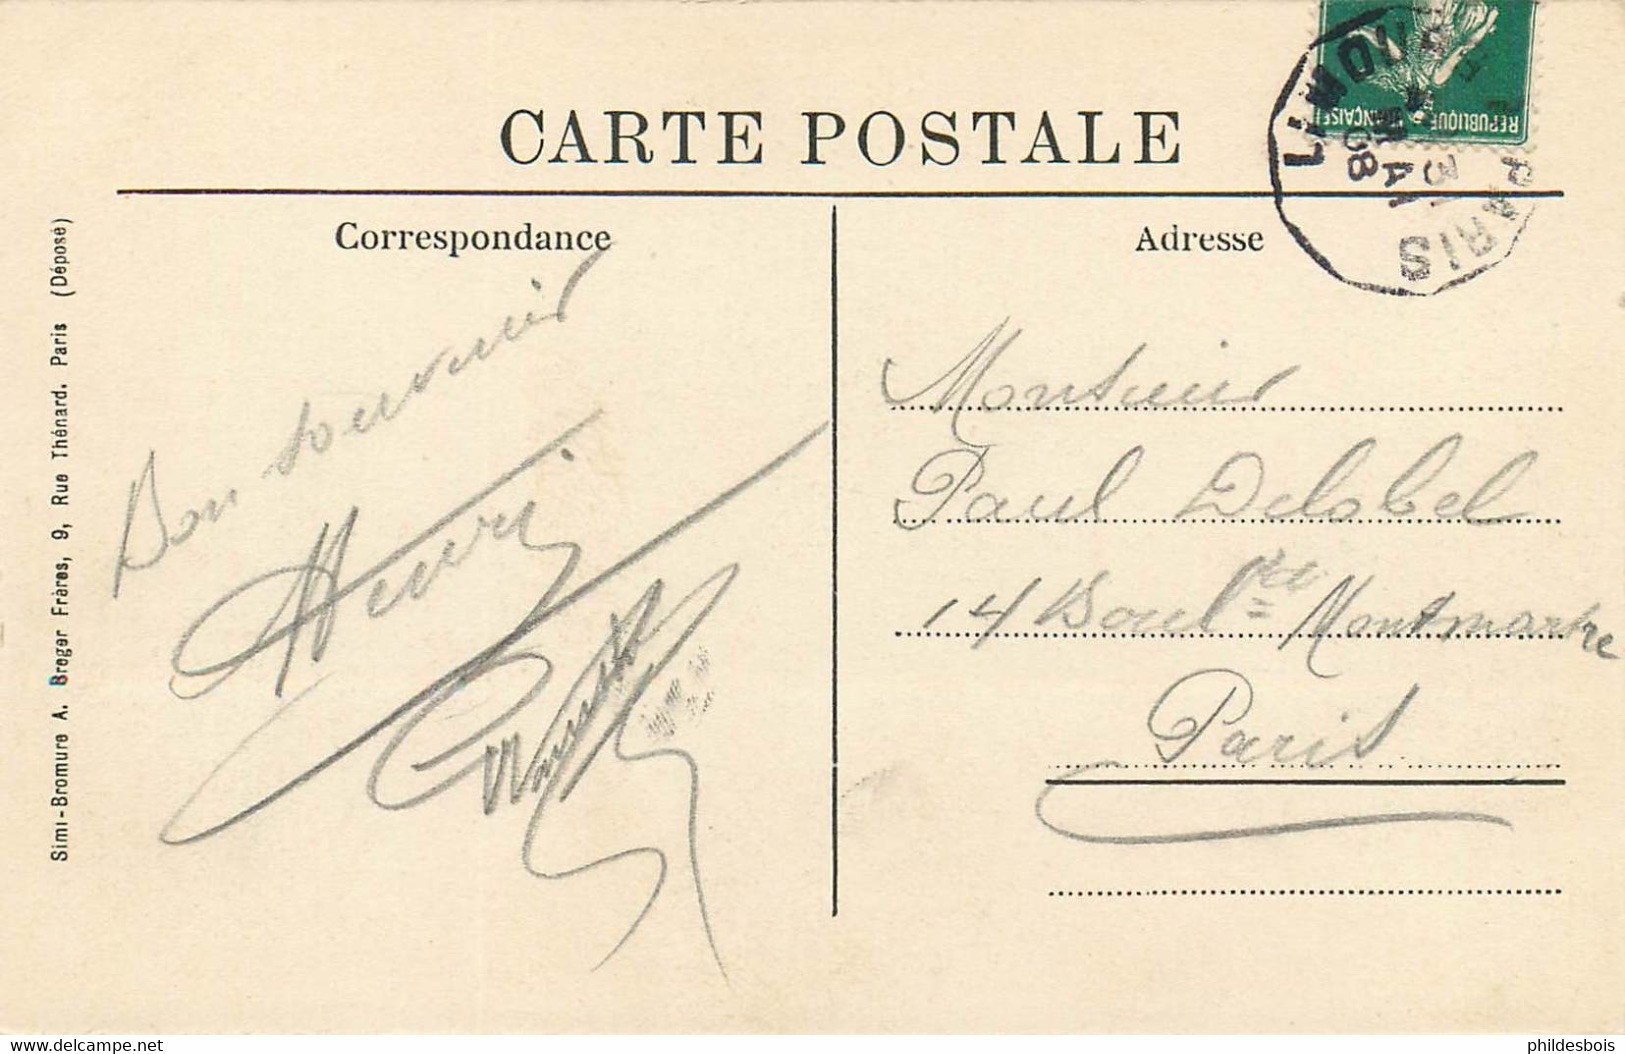 CARTE POSTALE
Correspondance
Adresse
RÉPUBLIQUE FRANÇAISE
LIMOU
PARIS
31
MAI
08
Simi-Bromure A. Breger Frères, 9, Rue Thénard. Paris (Déposé)
Bon souvenir
Henri
Monsieur
Paul Delobel
14 Boul. Montmartre
Paris
delcampe.net
phildesbois